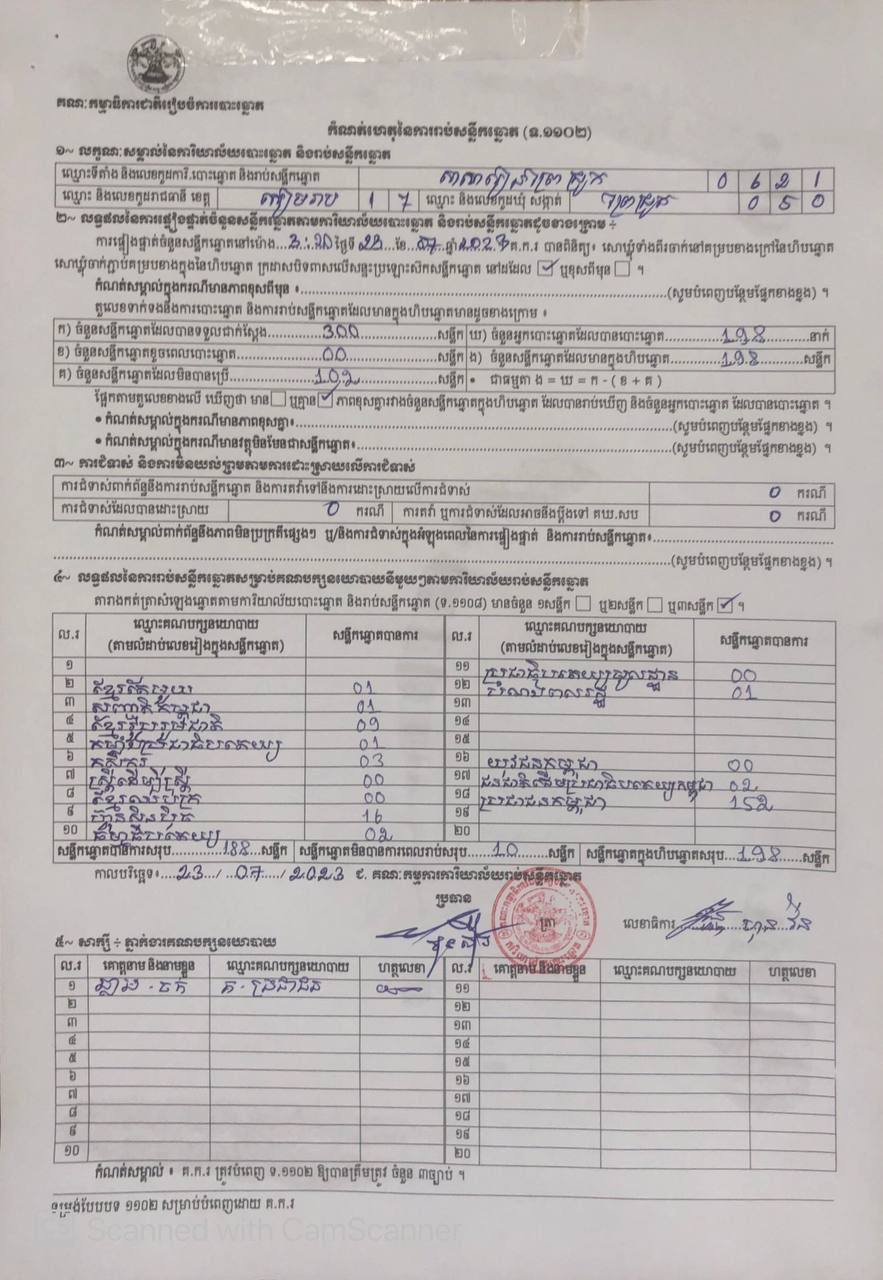 គណៈកម្មាធិការជាតិរៀបចំការបោះឆ្នោត
កំណត់ហេតុនៃការរាប់សន្លឹកឆ្នោត (ទ.១១០២)
១~ លក្ខណៈសម្គាល់នៃការិយាល័យបោះឆ្នោត និងរាប់សន្លឹកឆ្នោត
ឈ្មោះទីតាំង និងលេខកូដការិ.បោះឆ្នោត និងរាប់សន្លឹកឆ្នោត 0 6 2 1
ឈ្មោះ និងលេខកូដរាជធានី ខេត្ត សៀមរាប 1 7 ឈ្មោះ និងលេខកូដឃុំ សង្កាត់ 0 5 0
២~ លទ្ធផលនៃការផ្ទៀងផ្ទាត់ចំនួនសន្លឹកឆ្នោតតាមការិយាល័យបោះឆ្នោត និងរាប់សន្លឹកឆ្នោតដូចខាងក្រោម ÷
ការផ្ទៀងផ្ទាត់ចំនួនសន្លឹកឆ្នោតនៅម៉ោង...ថ្ងៃទី 23 ខែ 07 ឆ្នាំ 2023 គ.ក.រ បានពិនិត្យ៖ សោឃ្លុំទាំងពីរចាក់នៅគម្របខាងក្រៅនៃហិបឆ្នោត
សោឃ្លុំចាក់ភ្ជាប់គម្របខាងក្នុងនៃហិបឆ្នោត ក្រដាសបិទពាសលើសន្ទះប្រឡោះស៊កសន្លឹកឆ្នោត នៅដដែល ☑ ឬខុសពីមុន ☐ ។
កំណត់សម្គាល់ក្នុងករណីមានភាពខុសពីមុន ៖...(សូមបំពេញបន្ថែមផ្នែកខាងខ្នង) ។
តួលេខទាក់ទងនឹងការបោះឆ្នោត និងការរាប់សន្លឹកឆ្នោតដែលមានក្នុងហិបឆ្នោតមានដូចខាងក្រោម ៖
ក) ចំនួនសន្លឹកឆ្នោតដែលបានទទួលជាក់ស្តែង...300...សន្លឹក ឃ) ចំនួនអ្នកបោះឆ្នោតដែលបានបោះឆ្នោត...198...នាក់
ខ) ចំនួនសន្លឹកឆ្នោតខូចពេលបោះឆ្នោត...00...សន្លឹក ង) ចំនួនសន្លឹកឆ្នោតដែលមានក្នុងហិបឆ្នោត...198...សន្លឹក
គ) ចំនួនសន្លឹកឆ្នោតដែលមិនបានប្រើ...102...សន្លឹក • ជាធម្មតា ង = ឃ = ក - ( ខ + គ )
ផ្អែកតាមតួលេខខាងលើ ឃើញថា មាន ☐ ឬគ្មាន ☑ ភាពខុសគ្នារវាងចំនួនសន្លឹកឆ្នោតក្នុងហិបឆ្នោត ដែលបានរាប់ឃើញ និងចំនួនអ្នកបោះឆ្នោត ដែលបានបោះឆ្នោត ។
• កំណត់សម្គាល់ក្នុងករណីមានភាពខុសគ្នា៖...(សូមបំពេញបន្ថែមផ្នែកខាងខ្នង) ។
• កំណត់សម្គាល់ក្នុងករណីមានវត្ថុមិនមែនជាសន្លឹកឆ្នោត៖...(សូមបំពេញបន្ថែមផ្នែកខាងខ្នង) ។
៣~ ការជំទាស់ និងការមិនយល់ព្រមតាមការដោះស្រាយលើការជំទាស់
ការជំទាស់ពាក់ព័ន្ធនឹងការរាប់សន្លឹកឆ្នោត និងការតវ៉ាទៅនឹងការដោះស្រាយលើការជំទាស់ 0 ករណី
ការជំទាស់ដែលបានដោះស្រាយ 0 ករណី ការតវ៉ា ឬការជំទាស់ដែលអាចនឹងប្តឹងទៅ គឃ.សប 0 ករណី
កំណត់សម្គាល់ពាក់ព័ន្ធនឹងភាពមិនប្រក្រតីផ្សេងៗ ឬ/និងការជំទាស់ក្នុងអំឡុងពេលនៃការផ្ទៀងផ្ទាត់ និងការរាប់សន្លឹកឆ្នោត៖...
...(សូមបំពេញបន្ថែមផ្នែកខាងខ្នង) ។
៤~ លទ្ធផលនៃការរាប់សន្លឹកឆ្នោតសម្រាប់គណបក្សនយោបាយនីមួយៗតាមការិយាល័យរាប់សន្លឹកឆ្នោត
តារាងកត់ត្រាសំឡេងឆ្នោតតាមការិយាល័យបោះឆ្នោត និងរាប់សន្លឹកឆ្នោត (ទ.១១០៨) មានចំនួន ១សន្លឹក ☐ ឬ២សន្លឹក ☐ ឬ៣សន្លឹក ☑ ។
ល.រ ឈ្មោះគណបក្សនយោបាយ (តាមលំដាប់លេខរៀងក្នុងសន្លឹកឆ្នោត) សន្លឹកឆ្នោតបានការ ល.រ ឈ្មោះគណបក្សនយោបាយ (តាមលំដាប់លេខរៀងក្នុងសន្លឹកឆ្នោត) សន្លឹកឆ្នោតបានការ
១ ១១ ប្រជាធិបតេយ្យមូលដ្ឋាន 00
២ ខ្មែរតែមួយ 01 ១២ បំណងពលរដ្ឋ 01
៣ សញ្ជាតិកម្ពុជា 01 ១៣
៤ ខ្មែររួបរួមជាតិ 09 ១៤
៥ កម្លាំងប្រជាធិបតេយ្យ 01 ១៥
៦ កសិករ 03 ១៦ យុវជនកម្ពុជា 00
៧ ស្ត្រីដើម្បីស្ត្រី 00 ១៧ ជនជាតិដើមប្រជាធិបតេយ្យកម្ពុជា 02
៨ ខ្មែរឈប់ក្រ 00 ១៨ ប្រជាជនកម្ពុជា 152
៩ ហ៊្វុនស៊ិនប៉ិច 16 ១៩
១០ ធម្មាធិបតេយ្យ 02 ២០
សន្លឹកឆ្នោតបានការសរុប...188...សន្លឹក សន្លឹកឆ្នោតមិនបានការពេលរាប់សរុប...10...សន្លឹក សន្លឹកឆ្នោតក្នុងហិបឆ្នោតសរុប...198...សន្លឹក
កាលបរិច្ឆេទ៖ 23 / 07 / 2023 ជ. គណៈកម្មការការិយាល័យរាប់សន្លឹកឆ្នោត
ប្រធាន
ត្រា លេខាធិការ
៥~ សាក្សី ÷ ភ្នាក់ងារគណបក្សនយោបាយ
ល.រ គោត្តនាម និងនាមខ្លួន ឈ្មោះគណបក្សនយោបាយ ហត្ថលេខា ល.រ គោត្តនាម និងនាមខ្លួន ឈ្មោះគណបក្សនយោបាយ ហត្ថលេខា
១ គ.ប្រជាជន ១១
២ ១២
៣ ១៣
៤ ១៤
៥ ១៥
៦ ១៦
៧ ១៧
៨ ១៨
៩ ១៩
១០ ២០
កំណត់សម្គាល់ ៖ គ.ក.រ ត្រូវបំពេញ ទ.១១០២ ឱ្យបានត្រឹមត្រូវ ចំនួន ៣ច្បាប់ ។
ទម្រង់បែបបទ ១១០២ សម្រាប់បំពេញដោយ គ.ក.រ
Scanned with CamScanner